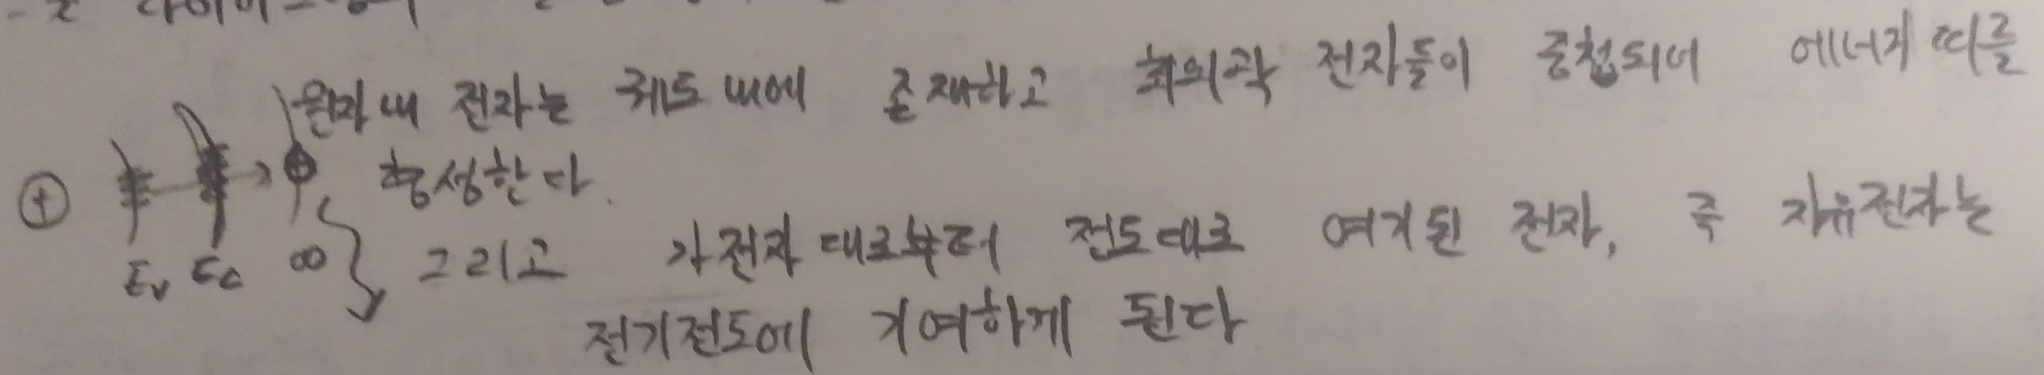 원자 내 전자는 궤도 내에 존재하고 최외곽 전자들이 중첩되어 에너지 띠를
⊕ 형성한다.
Ev Ec ∞ 그리고 가전자 대로부터 전도대로 여기된 전자, 즉 자유전자는
전기전도에 기여하게 된다